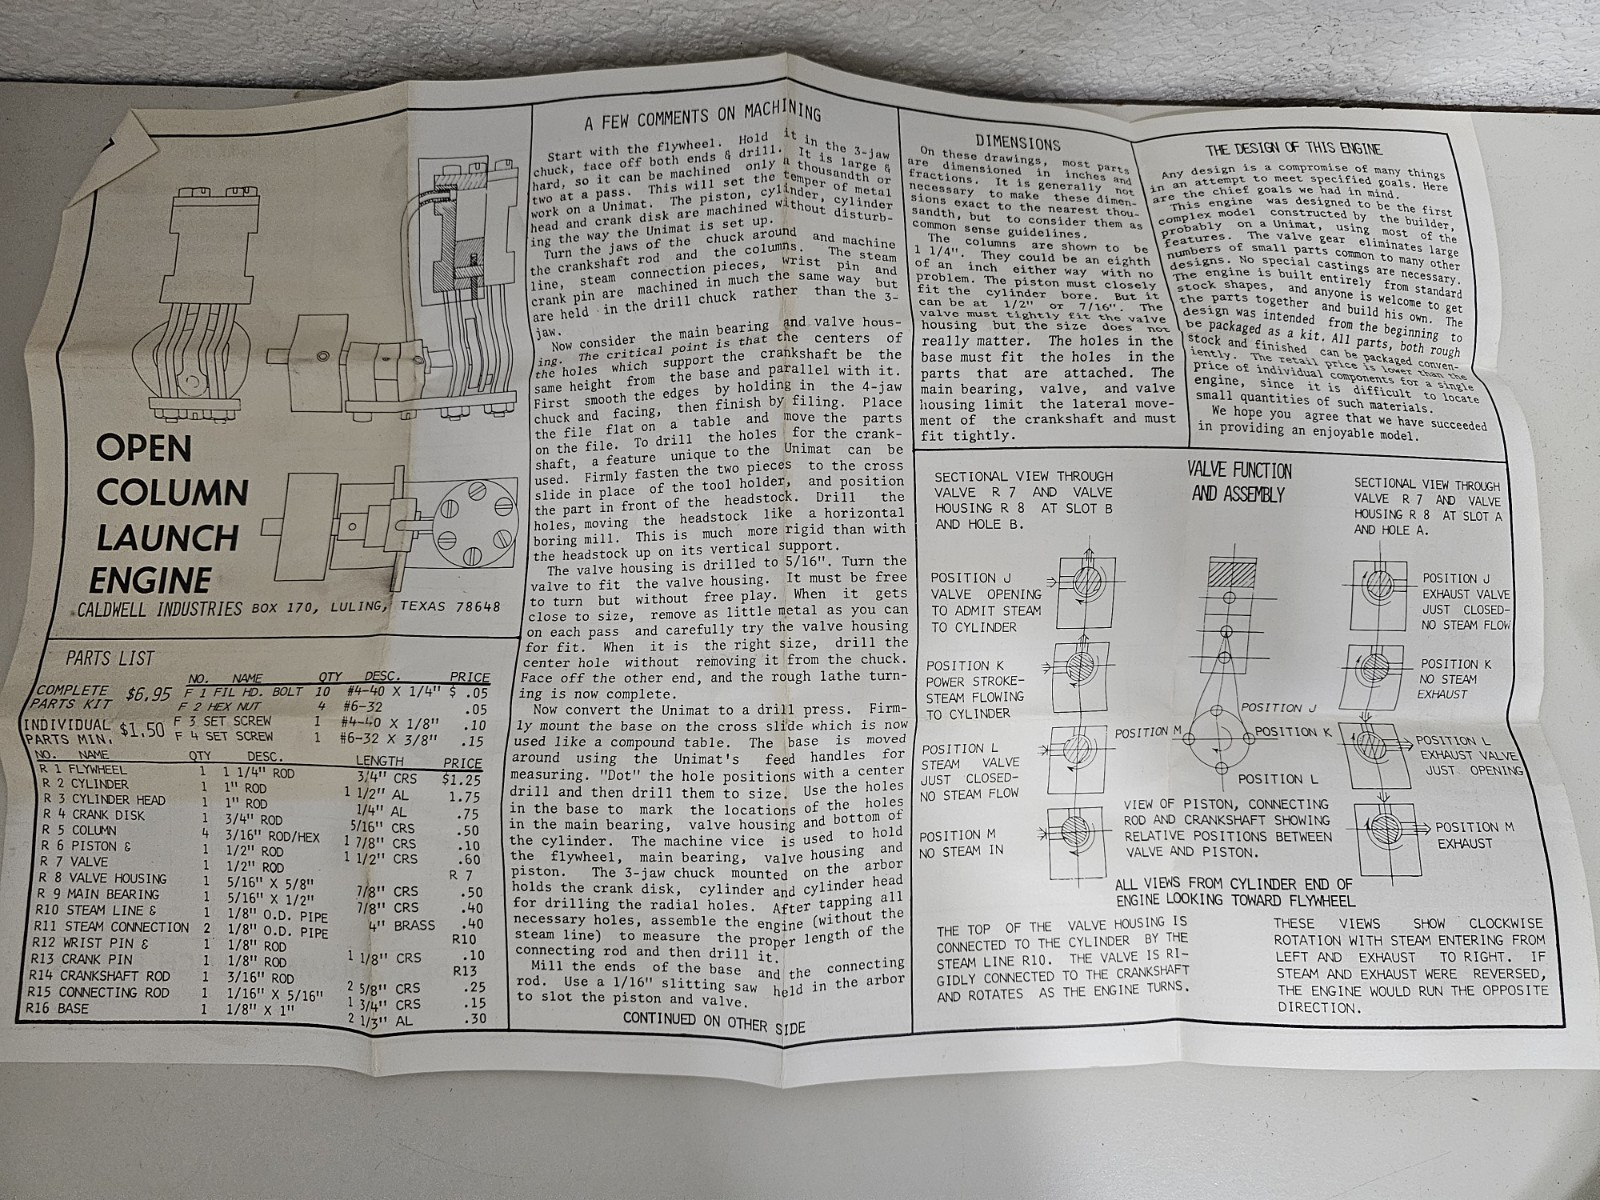 OPEN
COLUMN
LAUNCH
ENGINE
CALDWELL INDUSTRIES BOX 170, LULING, TEXAS 78648
PARTS LIST
COMPLETE PARTS KIT $6.95
INDIVIDUAL PARTS MIN. $1.50
NO. NAME QTY DESC. PRICE
F 1 FIL HD. BOLT 10 #4-40 X 1/4" $ .05
F 2 HEX NUT 4 #6-32 .05
F 3 SET SCREW 1 #4-40 X 1/8" .10
F 4 SET SCREW 1 #6-32 X 3/8" .15
NO. NAME QTY DESC. LENGTH PRICE
R 1 FLYWHEEL 1 1 1/4" ROD 3/4" CRS $1.25
R 2 CYLINDER 1 1" ROD 1 1/2" AL 1.75
R 3 CYLINDER HEAD 1 1" ROD 1/4" AL .75
R 4 CRANK DISK 1 3/4" ROD 5/16" CRS .50
R 5 COLUMN 4 3/16" ROD/HEX 1 7/8" CRS .10
R 6 PISTON & 1 1/2" ROD 1 1/2" CRS .60
R 7 VALVE 1 1/2" ROD R 7
R 8 VALVE HOUSING 1 5/16" X 5/8" 7/8" CRS .50
R 9 MAIN BEARING 1 5/16" X 1/2" 7/8" CRS .40
R10 STEAM LINE & 1 1/8" O.D. PIPE 4" BRASS .40
R11 STEAM CONNECTION 2 1/8" O.D. PIPE R10
R12 WRIST PIN & 1 1/8" ROD 1 1/8" CRS .10
R13 CRANK PIN 1 1/8" ROD R13
R14 CRANKSHAFT ROD 1 3/16" ROD 2 5/8" CRS .25
R15 CONNECTING ROD 1 1/16" X 5/16" 1 3/4" CRS .15
R16 BASE 1 1/8" X 1" 2 1/3" AL .30
A FEW COMMENTS ON MACHINING
Start with the flywheel. Hold it in the 3-jaw
chuck, face off both ends & drill. It is large &
hard, so it can be machined only a thousandth or
two at a pass. This will set the temper of metal
work on a Unimat. The piston, cylinder, cylinder
head and crank disk are machined without disturb-
ing the way the Unimat is set up.
Turn the jaws of the chuck around and machine
the crankshaft rod and the columns. The steam
line, steam connection pieces, wrist pin and
crank pin are machined in much the same way but
are held in the drill chuck rather than the 3-
jaw.
Now consider the main bearing and valve hous-
ing. The critical point is that the centers of
the holes which support the crankshaft be the
same height from the base and parallel with it.
First smooth the edges by holding in the 4-jaw
chuck and facing, then finish by filing. Place
the file flat on a table and move the parts
on the file. To drill the holes for the crank-
shaft, a feature unique to the Unimat can be
used. Firmly fasten the two pieces to the cross
slide in place of the tool holder, and position
the part in front of the headstock. Drill the
holes, moving the headstock like a horizontal
boring mill. This is much more rigid than with
the headstock up on its vertical support.
The valve housing is drilled to 5/16". Turn the
valve to fit the valve housing. It must be free
to turn but without free play. When it gets
close to size, remove as little metal as you can
on each pass and carefully try the valve housing
for fit. When it is the right size, drill the
center hole without removing it from the chuck.
Face off the other end, and the rough lathe turn-
ing is now complete.
Now convert the Unimat to a drill press. Firm-
ly mount the base on the cross slide which is now
used like a compound table. The base is moved
around using the Unimat's feed handles for
measuring. "Dot" the hole positions with a center
drill and then drill them to size. Use the holes
in the base to mark the locations of the holes
in the main bearing, valve housing and bottom of
the cylinder. The machine vice is used to hold
the flywheel, main bearing, valve housing and
piston. The 3-jaw chuck mounted on the arbor
holds the crank disk, cylinder and cylinder head
for drilling the radial holes. After tapping all
necessary holes, assemble the engine (without the
steam line) to measure the proper length of the
connecting rod and then drill it.
Mill the ends of the base and the connecting
rod. Use a 1/16" slitting saw held in the arbor
to slot the piston and valve.
CONTINUED ON OTHER SIDE
DIMENSIONS
On these drawings, most parts
are dimensioned in inches and
fractions. It is generally not
necessary to make these dimen-
sions exact to the nearest thou-
sandth, but to consider them as
common sense guidelines.
The columns are shown to be
1 1/4". They could be an eighth
of an inch either way with no
problem. The piston must closely
fit the cylinder bore. But it
can be at 1/2" or 7/16". The
valve must tightly fit the valve
housing but the size does not
really matter. The holes in the
base must fit the holes in the
parts that are attached. The
main bearing, valve, and valve
housing limit the lateral move-
ment of the crankshaft and must
fit tightly.
THE DESIGN OF THIS ENGINE
Any design is a compromise of many things
in an attempt to meet specified goals. Here
are the chief goals we had in mind.
This engine was designed to be the first
complex model constructed by the builder,
probably on a Unimat, using most of the
features. The valve gear eliminates large
numbers of small parts common to many other
designs. No special castings are necessary.
The engine is built entirely from standard
stock shapes, and anyone is welcome to get
the parts together and build his own. The
design was intended from the beginning to
be packaged as a kit. All parts, both rough
stock and finished can be packaged conven-
iently. The retail price is lower than the
price of individual components for a single
engine, since it is difficult to locate
small quantities of such materials.
We hope you agree that we have succeeded
in providing an enjoyable model.
VALVE FUNCTION
AND ASSEMBLY
SECTIONAL VIEW THROUGH
VALVE R 7 AND VALVE
HOUSING R 8 AT SLOT B
AND HOLE B.
POSITION J
VALVE OPENING
TO ADMIT STEAM
TO CYLINDER
POSITION K
POWER STROKE-
STEAM FLOWING
TO CYLINDER
POSITION L
STEAM VALVE
JUST CLOSED-
NO STEAM FLOW
POSITION M
NO STEAM IN
POSITION J
POSITION M
POSITION K
POSITION L
VIEW OF PISTON, CONNECTING
ROD AND CRANKSHAFT SHOWING
RELATIVE POSITIONS BETWEEN
VALVE AND PISTON.
SECTIONAL VIEW THROUGH
VALVE R 7 AND VALVE
HOUSING R 8 AT SLOT A
AND HOLE A.
POSITION J
EXHAUST VALVE
JUST CLOSED-
NO STEAM FLOW
POSITION K
NO STEAM
EXHAUST
POSITION L
EXHAUST VALVE
JUST OPENING
POSITION M
EXHAUST
ALL VIEWS FROM CYLINDER END OF
ENGINE LOOKING TOWARD FLYWHEEL
THE TOP OF THE VALVE HOUSING IS
CONNECTED TO THE CYLINDER BY THE
STEAM LINE R10. THE VALVE IS RI-
GIDLY CONNECTED TO THE CRANKSHAFT
AND ROTATES AS THE ENGINE TURNS.
THESE VIEWS SHOW CLOCKWISE
ROTATION WITH STEAM ENTERING FROM
LEFT AND EXHAUST TO RIGHT. IF
STEAM AND EXHAUST WERE REVERSED,
THE ENGINE WOULD RUN THE OPPOSITE
DIRECTION.